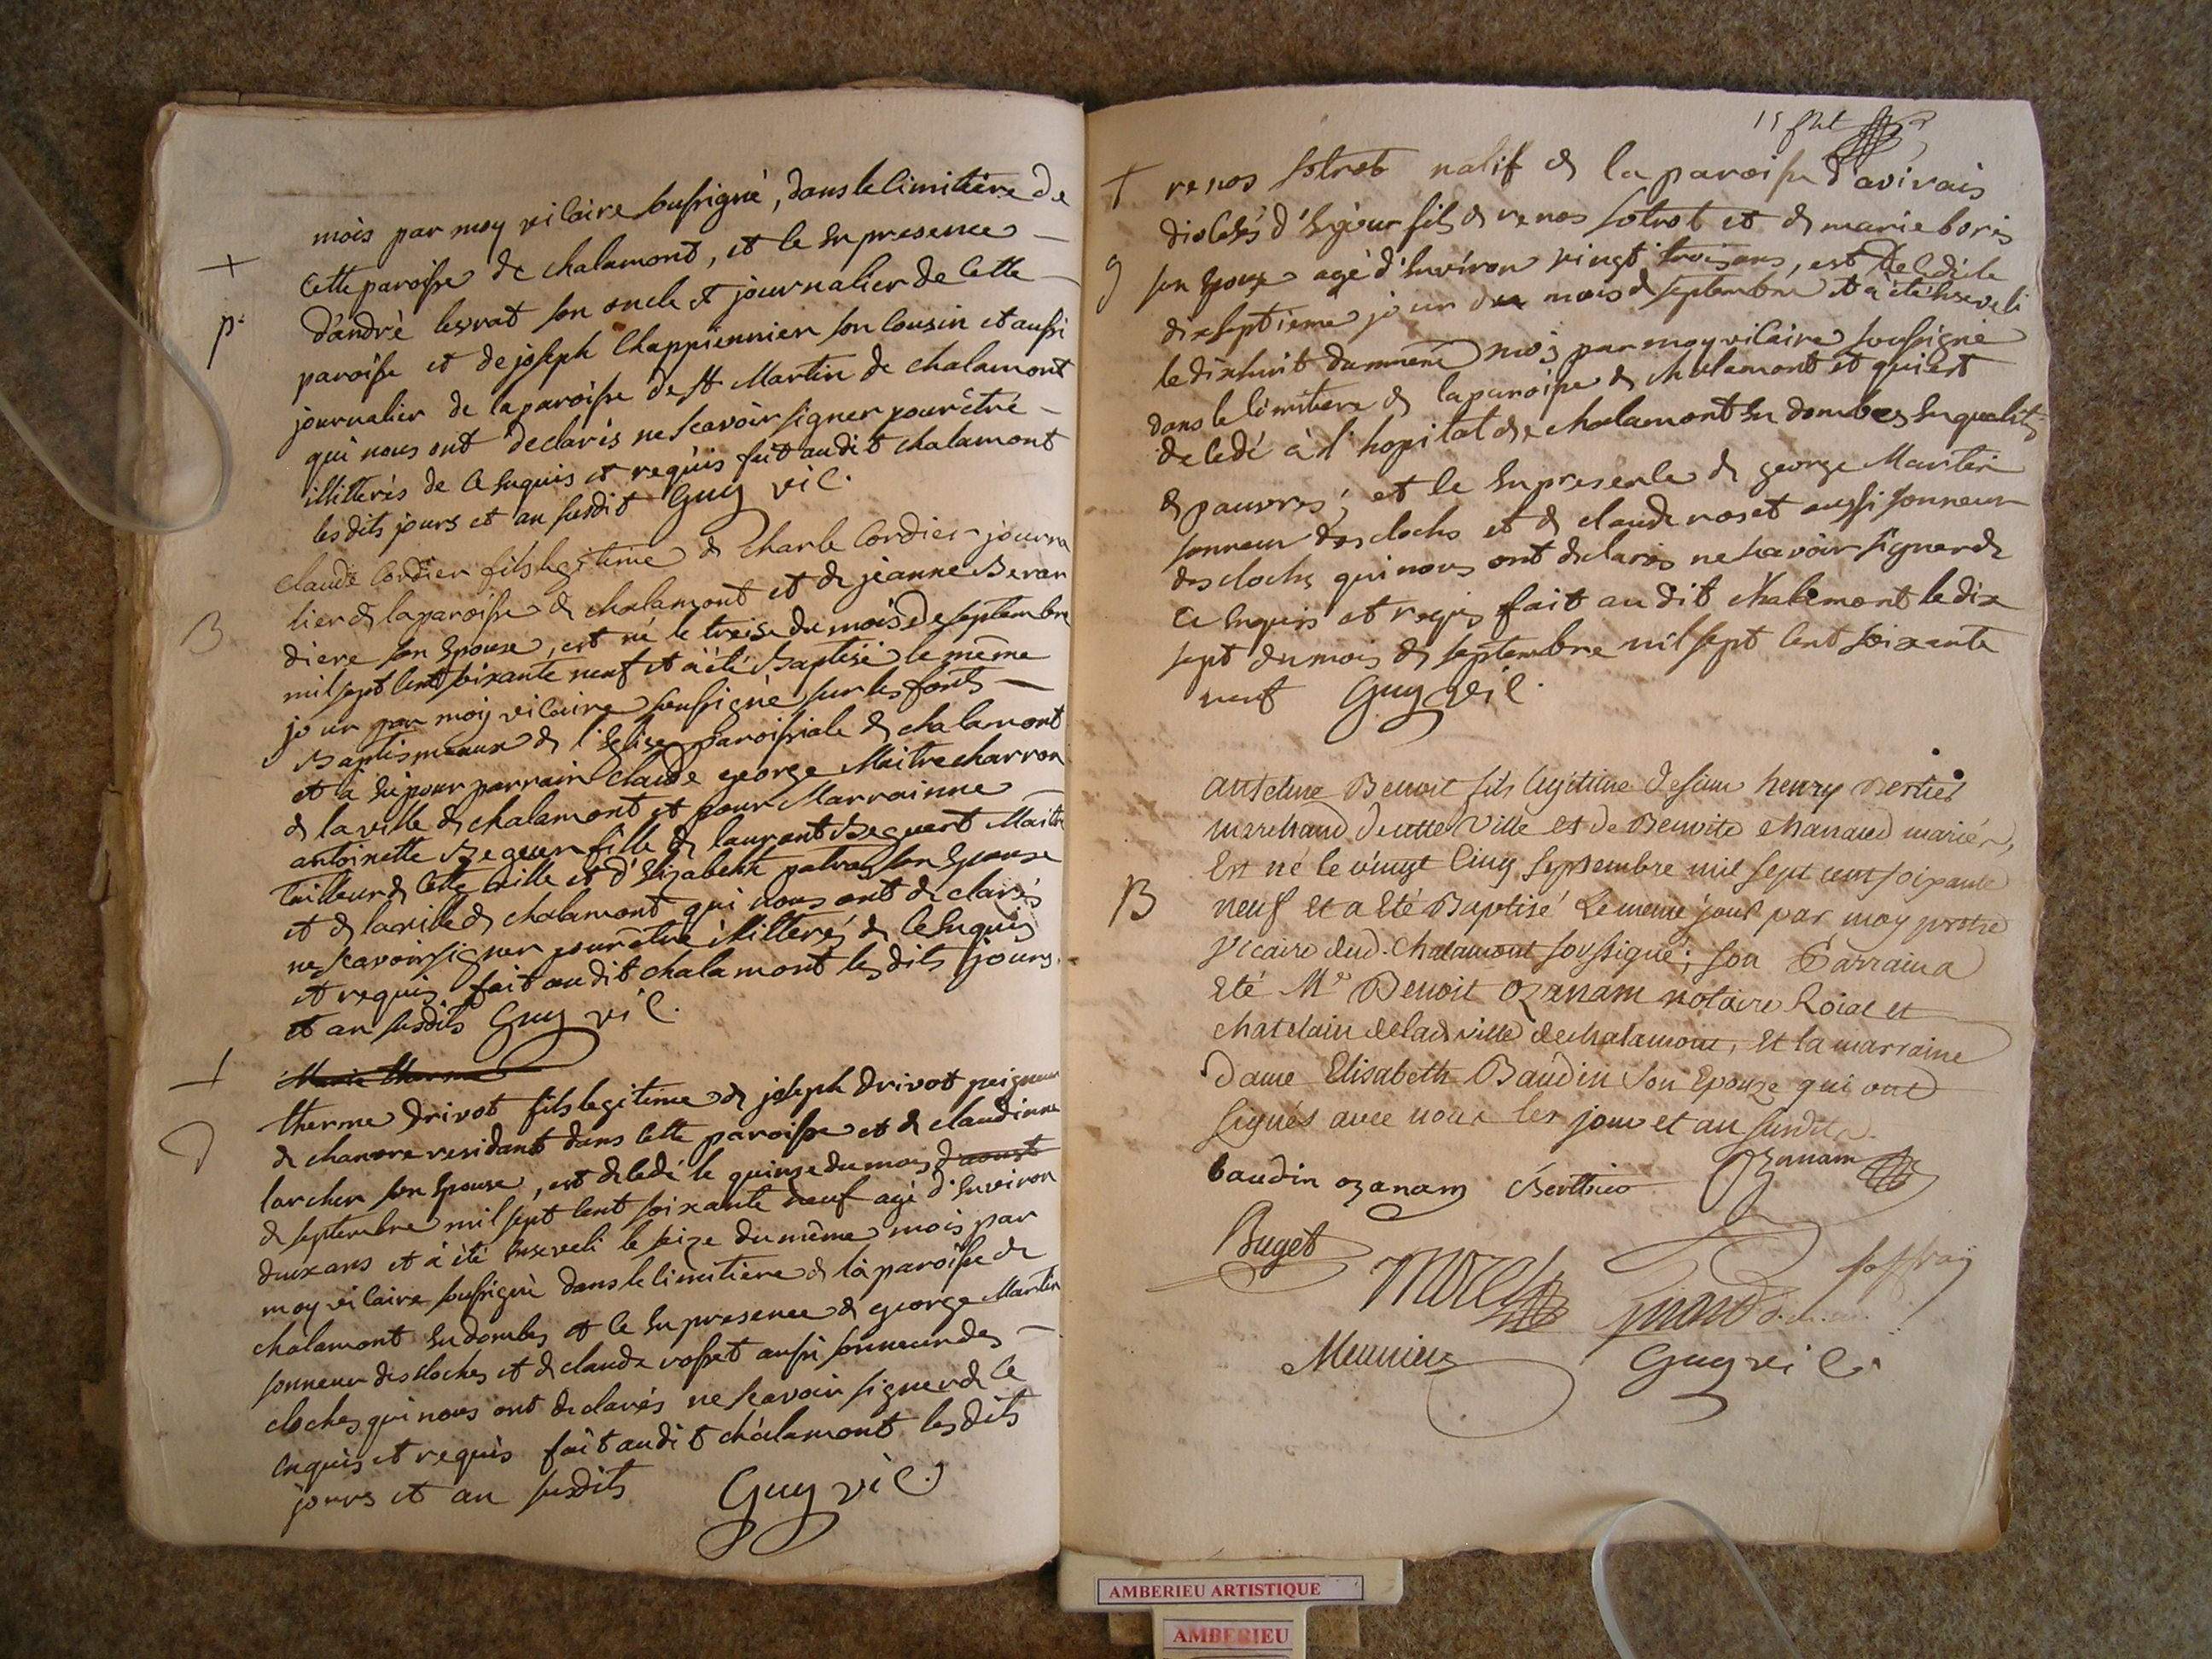 mois par moy vicaire soussigné, dans le cimitière de
+ cette paroisse de chalamont, et ce en presence
d'andrè levrat son oncle et journalier de cette
p. paroisse et de joseph Chappiennier son cousin et aussi
journalier de la paroisse de st Martin de chalamont
qui nous ont declarés ne scavoir signer pour être
illitterés de ce enquis et requis fait audit chalamont
les dits jours et an susdit Guy vic.
Claude Cordier fils legitime de Charle Cordier journa
lier de la paroisse de chalamont et de jeanne Beran
B diere son Epouse, est né le treise du mois de septembre
mil sept cent soixante neuf et a été Baptisé le même
jour par moy vicaire soussigné sur les fonts
Baptismeaux de l'Eglise paroissiale de chalamont
et à eu pour parrain Claude george Maitre charron
de la ville de chalamont et pour Marrainne
antoinette Beguer fille de laurant Beguert Maitre
tailleur de cette ville et d'Elizabeth patra son Epouse
et de la ville de chalamont qui nous ont declarés
ne scavoir signer pour être illitterés de ce enquis
et requis fait audit chalamont les dits jours
et an susdits Guy vic.
+ Marie therme
therme Drivot fils legitime de joseph Drivot peigneur
D de chanvre residant dans cette paroisse et de claudinne
larcher son Epouse, est decedé le quinse du mois d'aoust
de septembre mil sept cent soixante neuf agé d'Environ
deux ans et à été Enseveli le seize du même mois par
moy vicaire soussigné dans le cimitiere de la paroisse de
chalamont En dombes et ce En presence de george Martin
sonneur des cloches et de claude rosset aussi sonneur des
cloches qui nous ont declarés ne scavoir signer de ce
enquis et requis fait audit chalamont les dits
jours et an susdits Guy vic
15
+ renos sotrot natif de la paroisse d'avirais
fils de renos sotrot et de marie boris
g son Epouse agé d'Environ vingt trois ans, est decedé le
dixseptieme jour du mois de septembre et à été Enseveli
le dixhuit du même mois par moy vicaire soussigné
dans le cimitiere de la paroisse de chalamont et qui est
decedé à l'hopital de chalamont En dombes En qualité
de pauvres; et ce En presence de george Martin
sonneur des clochs et de claude roset aussi sonneur
des clochs qui nous ont declarés ne scavoir signer de
ce Enquis et requis fait au dit chalamont le dix
sept du mois de septembre mil sept cent soixante
neuf Guy vic.
antelme Benoit fils legitime de sieur henry Bertier
marchand de cette ville et de Benoite chanaud mariés,
Est né le vingt cinq septembre mil sept cent soixante
B neuf et a Eté Baptisé Le meme jour par moy pretre
vicaire dud. Chalamont soussigné; son Parrain a
Eté Mr Benoit Ozanam notaire Roial et
chatelain de lad ville de chalamont, Et la marraine
Dame Elisabeth Baudin son Epouze qui ont
signés avec nous les jour et an susdits.
baudin ozanam Berthier Ozanam
Buget Morel joffray
Meunier Guy vic
AMBERIEU ARTISTIQUE
AMBERIEU